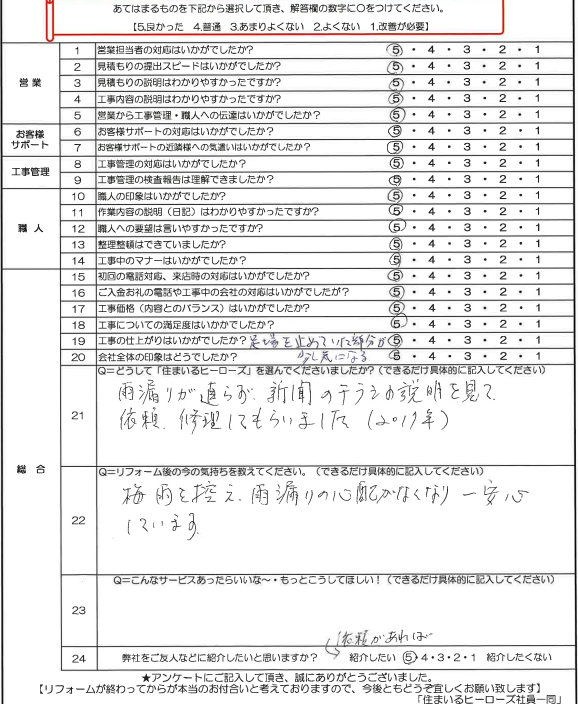 あてはまるものを下記から選択して頂き、解答欄の数字に○をつけてください。
【5.良かった 4.普通 3.あまりよくない 2.よくない 1.改善が必要】
営業
1 営業担当者の対応はいかがでしたか? 5・4・3・2・1
2 見積もりの提出スピードはいかがでしたか? 5・4・3・2・1
3 見積もりの説明はわかりやすかったですか? 5・4・3・2・1
4 工事内容の説明はわかりやすかったですか? 5・4・3・2・1
5 営業から工事管理・職人への伝達はいかがでしたか? 5・4・3・2・1
お客様サポート
6 お客様サポートの対応はいかがでしたか? 5・4・3・2・1
7 お客様サポートの近隣様への気遣いはいかがでしたか? 5・4・3・2・1
工事管理
8 工事管理の対応はいかがでしたか? 5・4・3・2・1
9 工事管理の検査報告は理解できましたか? 5・4・3・2・1
職人
10 職人の印象はいかがでしたか? 5・4・3・2・1
11 作業内容の説明(日記)はわかりやすかったですか? 5・4・3・2・1
12 職人への要望は言いやすかったですか? 5・4・3・2・1
13 整理整頓はできていましたか? 5・4・3・2・1
14 工事中のマナーはいかがでしたか? 5・4・3・2・1
総合
15 初回の電話対応、来店時の対応はいかがでしたか? 5・4・3・2・1
16 ご入金お礼の電話や工事中の会社の対応はいかがでしたが? 5・4・3・2・1
17 工事価格(内容とのバランス)はいかがでしたか? 5・4・3・2・1
18 工事についての満足度はいかがでしたか? 5・4・3・2・1
19 工事の仕上がりはいかがでしたか? 足場を止めていた部分が 5・4・3・2・1
20 会社全体の印象はどうでしたか? 少し気になる 5・4・3・2・1
21 Q=どうして「住まいるヒーローズ」を選んでくださいましたか?(できるだけ具体的に記入してください)
雨漏りが直らず、新聞のチラシの説明を見て、
依頼、修理してもらいました(2019年)
22 Q=リフォーム後の今の気持ちを教えてください。(できるだけ具体的に記入してください)
梅雨を控え、雨漏りの心配がなくなり一安心
しています。
23 Q=こんなサービスあったらいいな〜・もっとこうしてほしい!(できるだけ具体的に記入してください)
依頼があれば
24 弊社をご友人などに紹介したいと思いますか? 紹介したい 5・4・3・2・1 紹介したくない
★アンケートにご記入して頂き、誠にありがとうございました。
【リフォームが終わってからが本当のお付合いと考えておりますので、今後ともどうぞ宜しくお願い致します】
「住まいるヒーローズ社員一同」